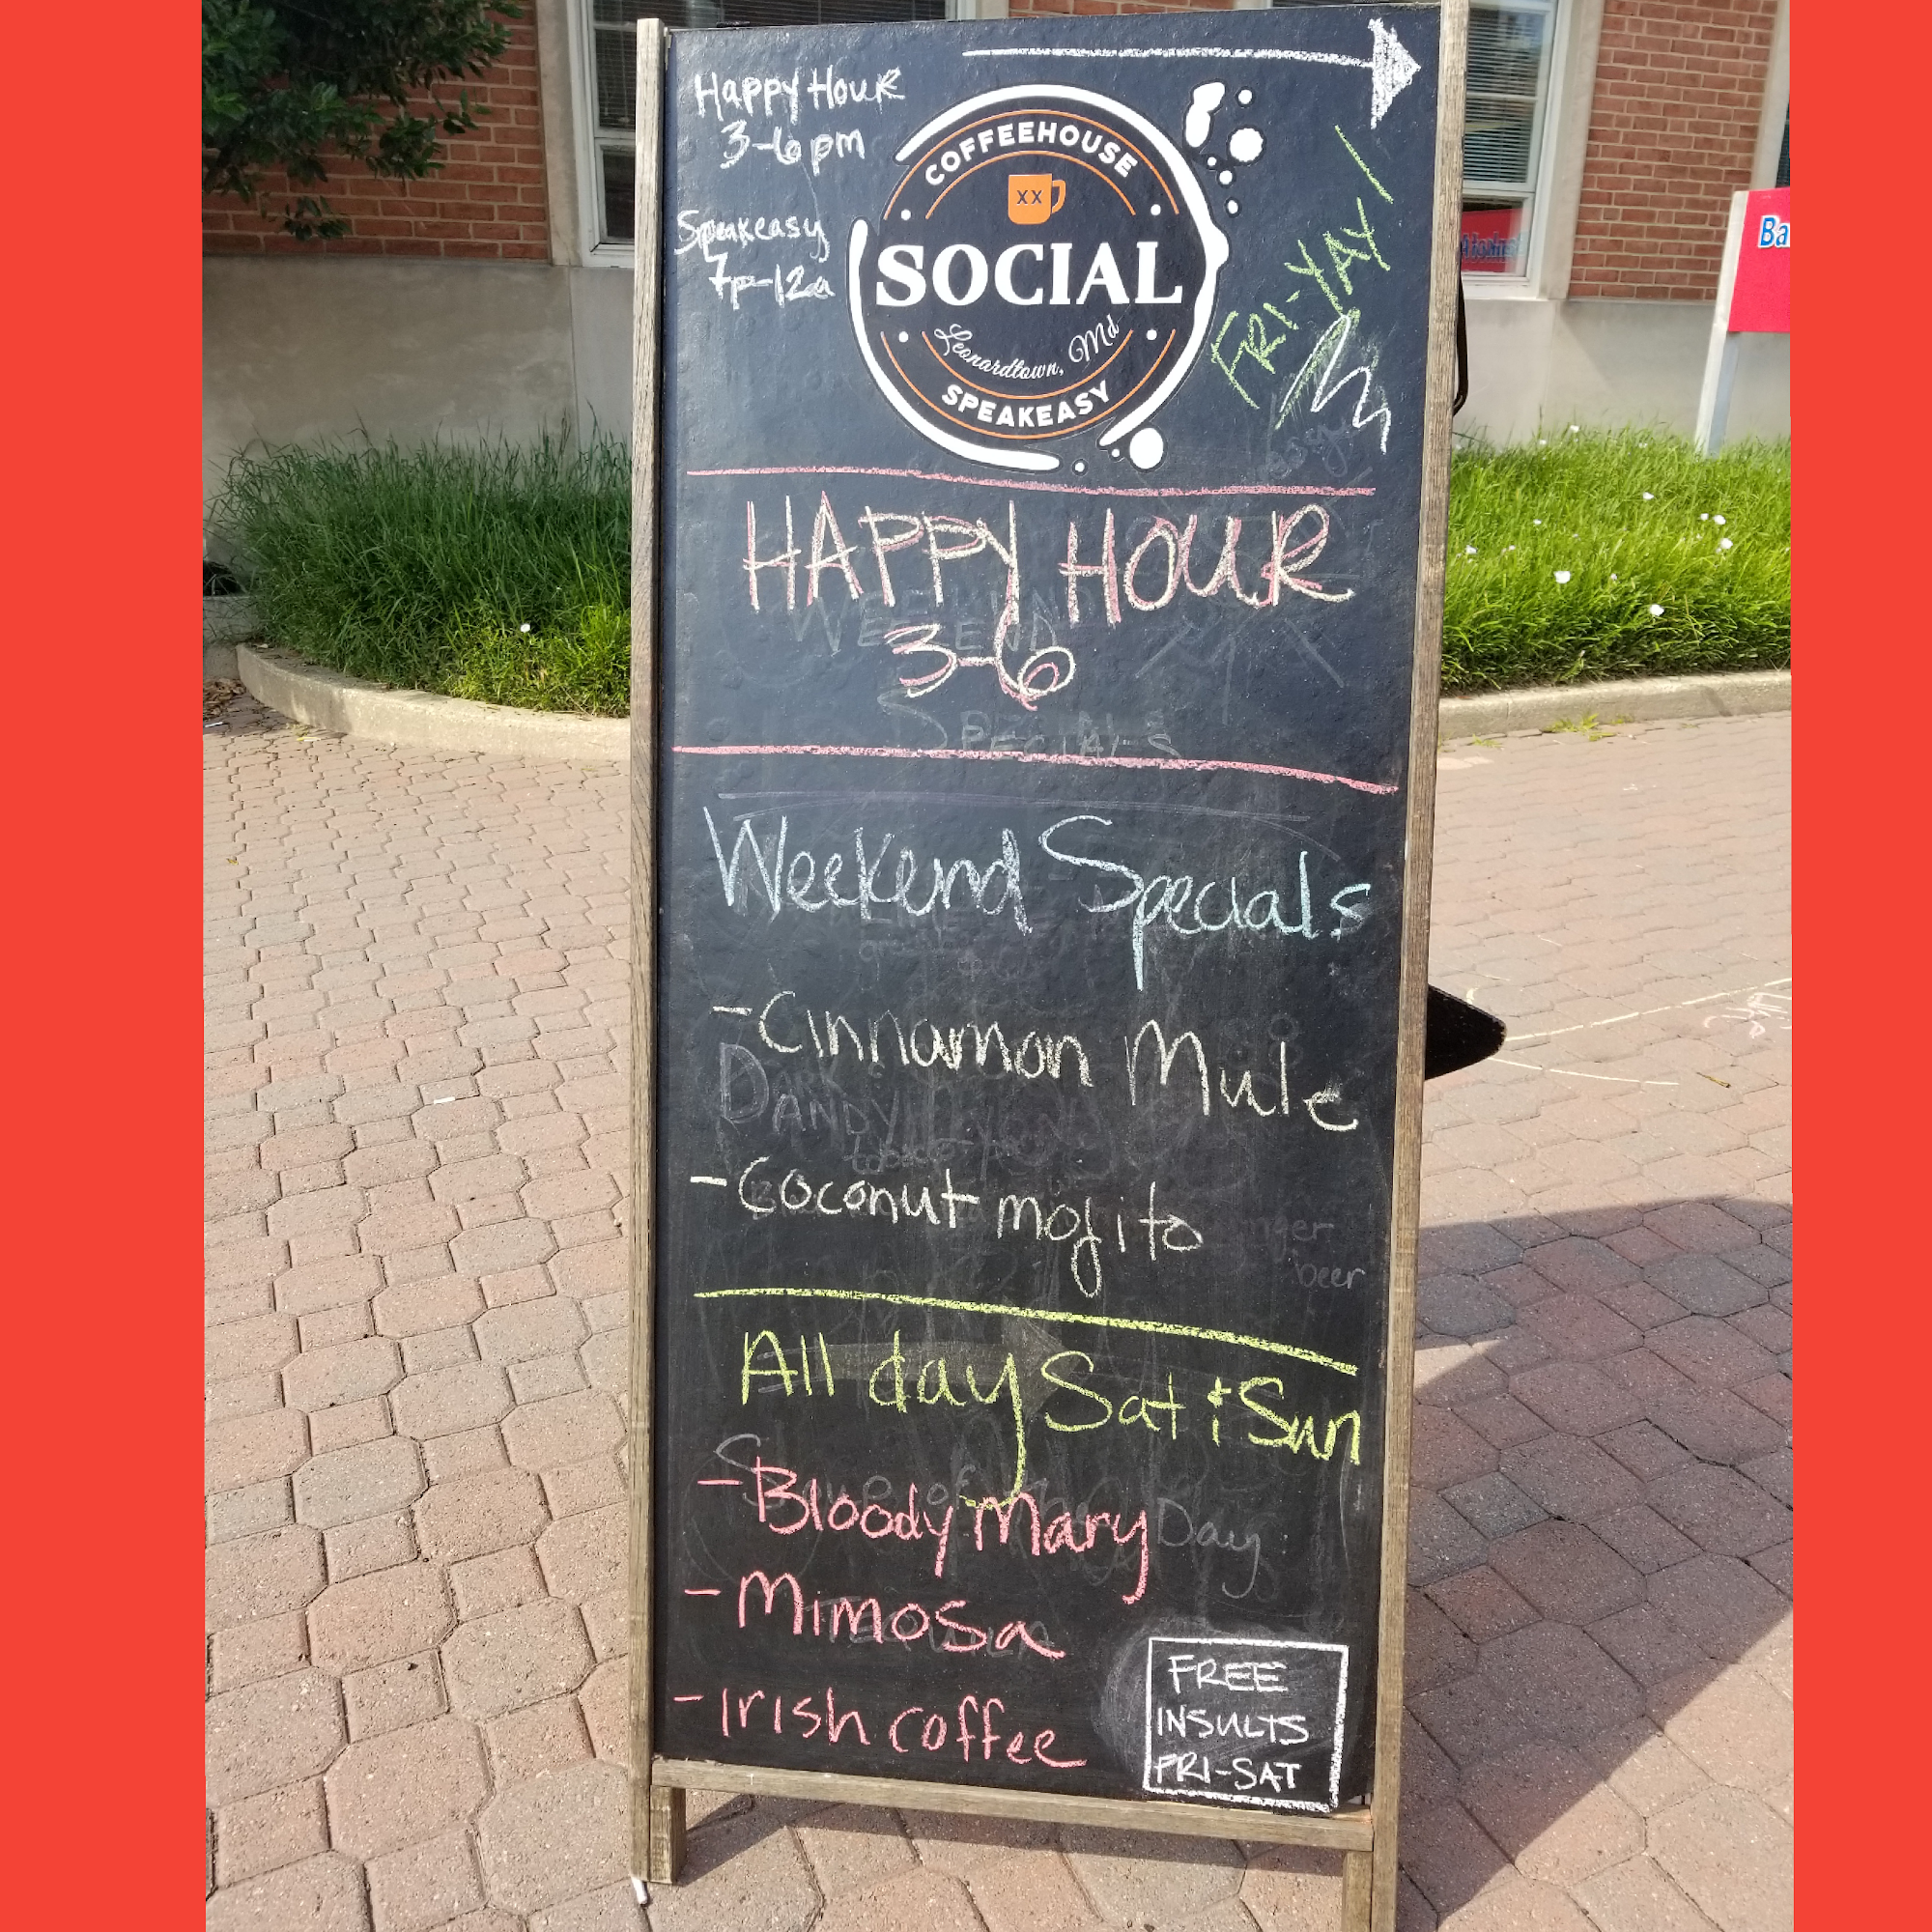 Happy Hour
3-6pm
Speakeasy
7p-12a
COFFEEHOUSE
XX
SOCIAL
Leonardtown, Md
SPEAKEASY
FRI-YAY!
Ba
HAPPY HOUR
3-6
WEEKEND
SPECIALS
Weekend Specials
-Cinnamon Mule
DARK
DANDY
-Coconut mojito
beer
All day Sat + Sun
Day
-Bloody Mary
-Mimosa
-Irish coffee
FREE
INSULTS
FRI-SAT